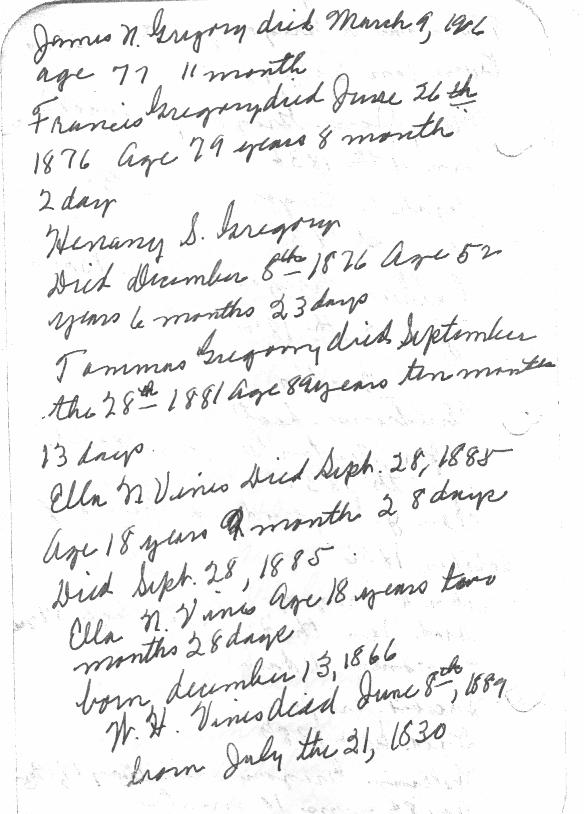 James N. Gregory died March 9, 1906
age 77 11 month
Francis Gregory died June 26th
1876 Age 79 years 8 month
2 day
Henany S. Gregory
Died December 8th 1876 Age 52
years 6 months 23 days
Tommas Gregory died September
the 28th 1881 Age 89 years ten months
13 days
Ella N Vines Died Sept. 28, 1885
Age 18 years 9 month 28 days
Died Sept. 28, 1885
Ella N. Vines Age 18 years two
months 28 days
born, december 13, 1866
W. H. Vines diead June 8th, 1889
born July the 21, 1830